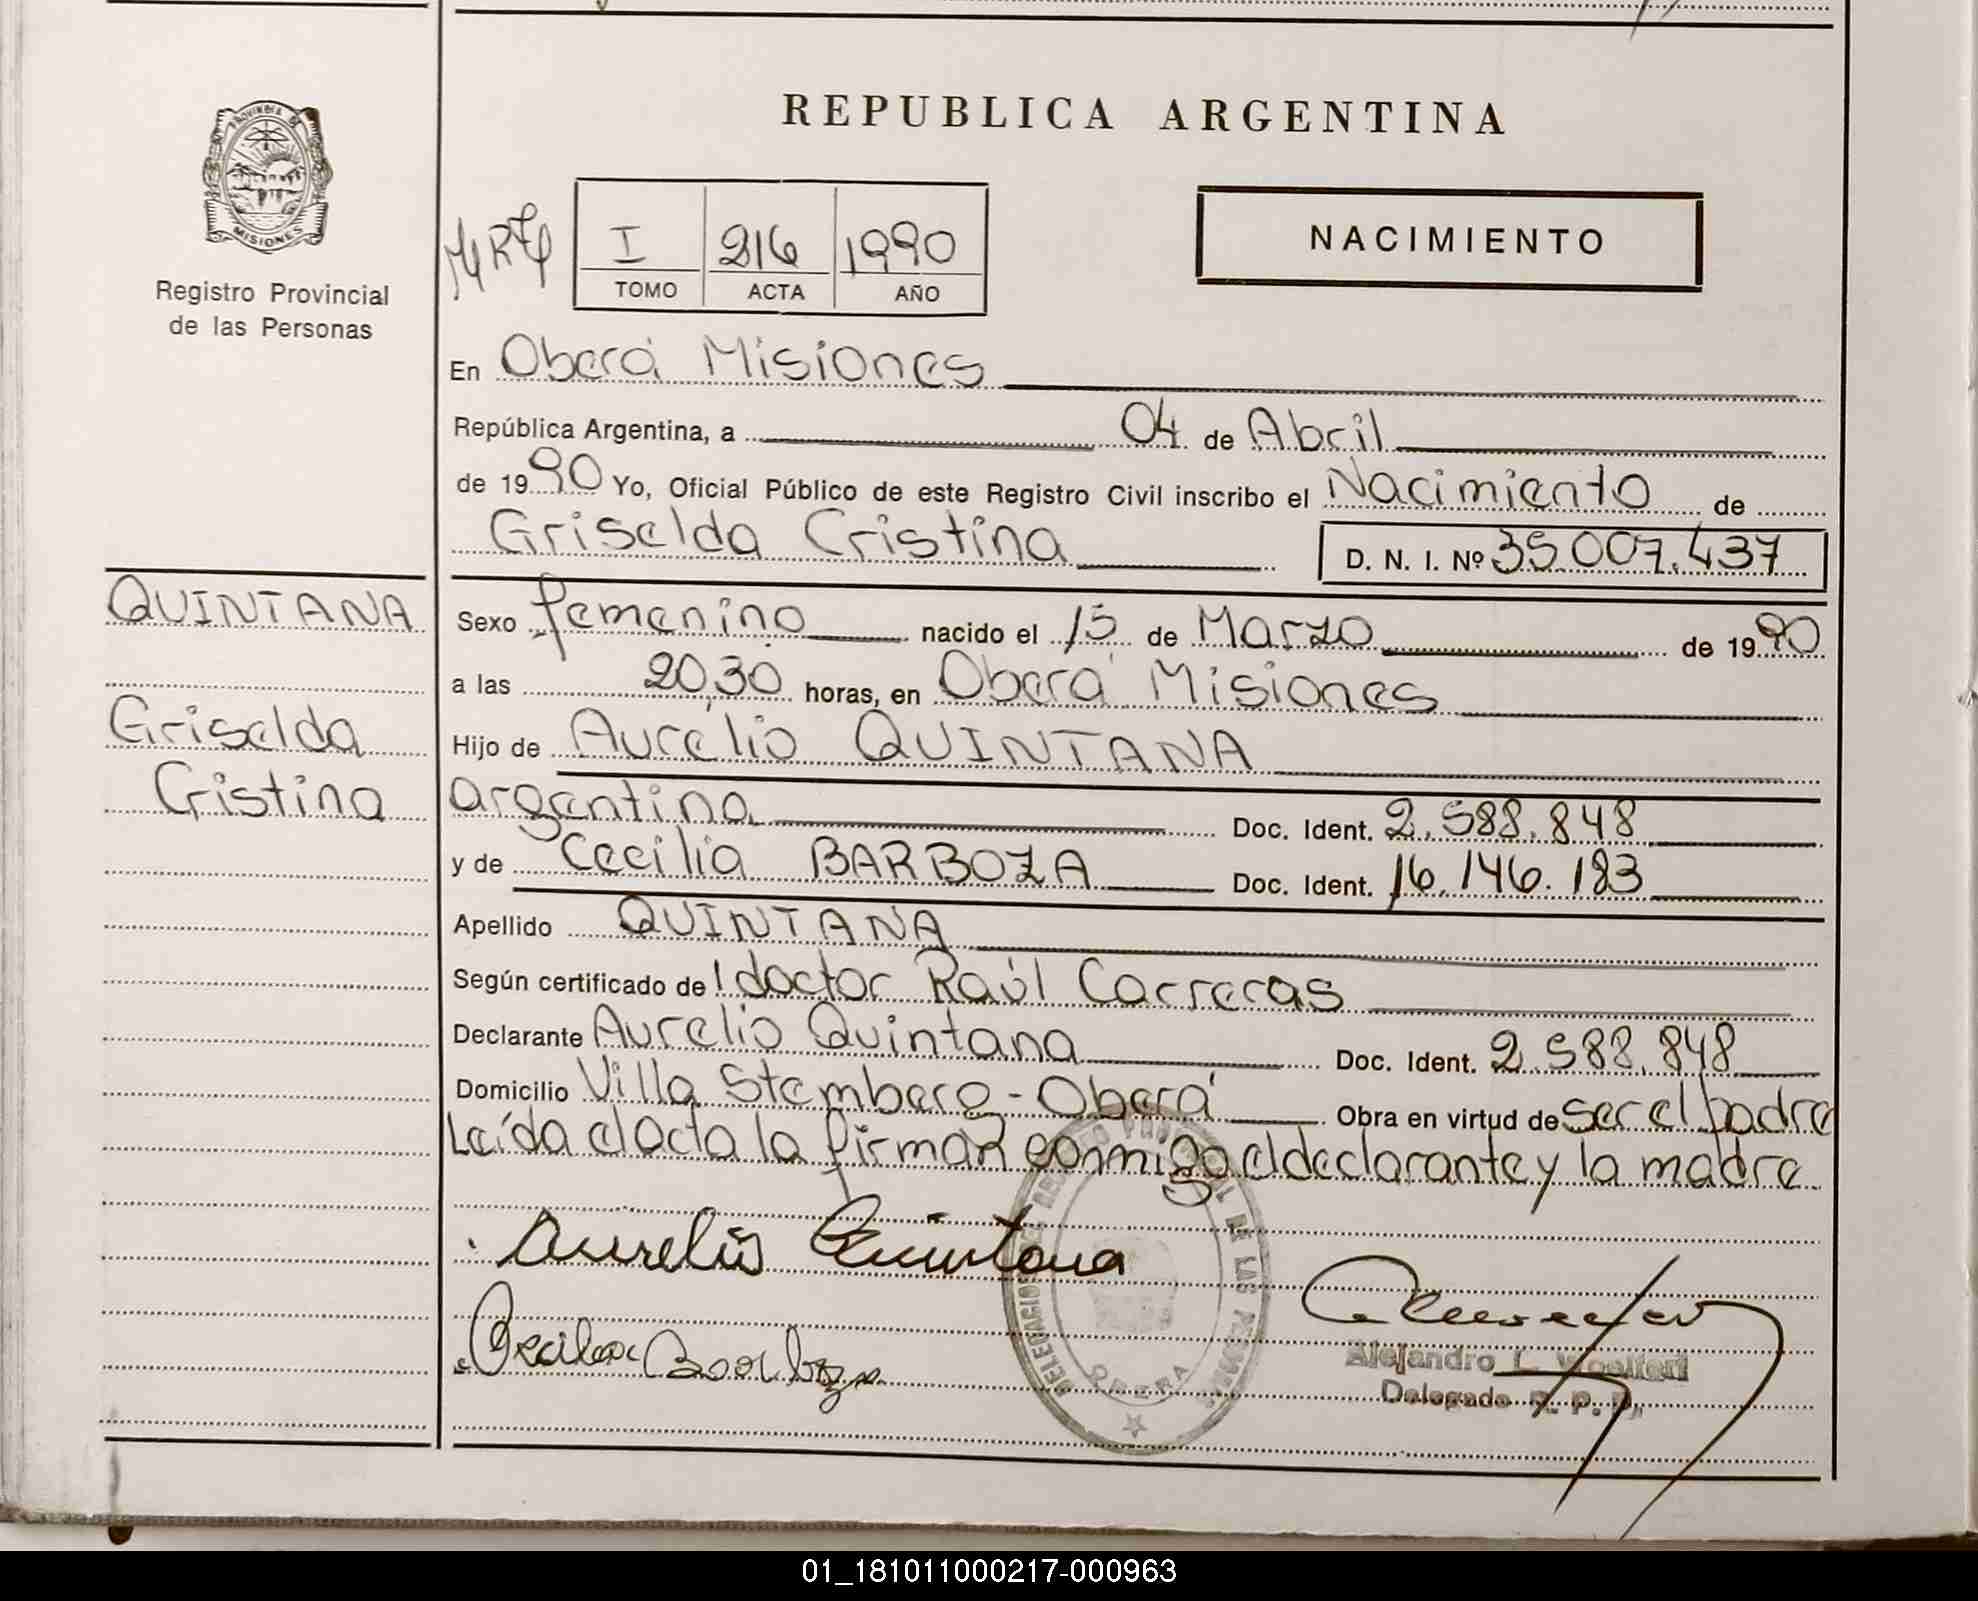 REPUBLICA ARGENTINA
PROVINCIA DE
MISIONES
Registro Provincial
de las Personas
I 216 1990
TOMO ACTA AÑO
NACIMIENTO
En Oberá Misiones
República Argentina, a 04 de Abril
de 1990 Yo, Oficial Público de este Registro Civil inscribo el Nacimiento de
Griselda Cristina D. N. I. Nº 35.007.437
QUINTANA
Griselda
Cristina
Sexo femenino nacido el 15 de Marzo de 1990
a las 20,30 horas, en Oberá Misiones
Hijo de Aurelio QUINTANA
argentina Doc. Ident. 2.588.848
y de Cecilia BARBOZA Doc. Ident. 16.146.183
Apellido QUINTANA
Según certificado de l doctor Raúl Carreras
Declarante Aurelio Quintana Doc. Ident. 2.588.848
Domicilio Villa Stemberg - Oberá Obra en virtud de ser el padre
Leída el acta la firman conmigo el declarante y la madre
Aurelio Quintana
Cecilia Barboza
DE LAS PERSONAS
OBERA
Alejandro L. Woelfert
Delegado R. P. P.
01_181011000217-000963